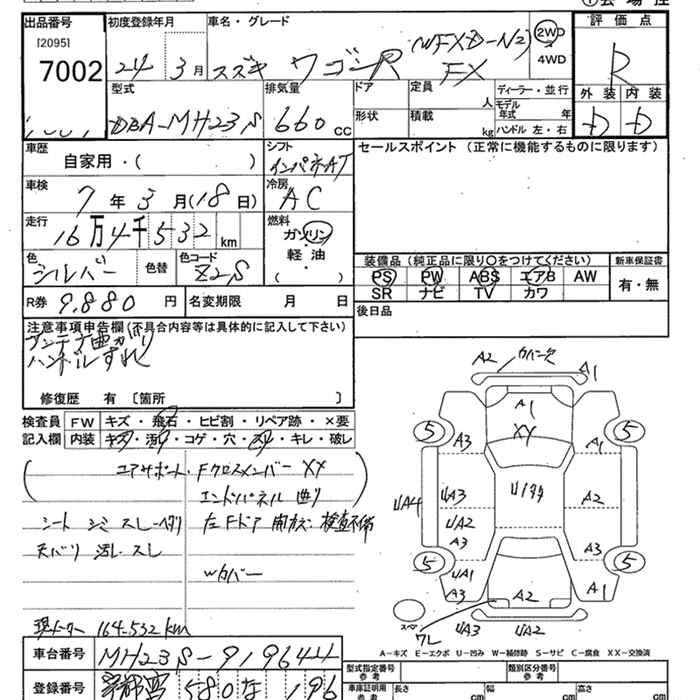 出品番号
[2095]
7002
初度登録年月
24 3月
車名・グレード
スズキ ワゴンR
FX
2WD
4WD
評価点
R
外装 内装
D D
型式
DBA-MH23S
排気量
660 cc
ドア
形状
定員
人
積載
kg
ディーラー・並行
モデル
年式 年
ハンドル 左・右
車歴
自家用・( )
シフト
インパネAT
セールスポイント (正常に機能するものに限ります)
車検
7年3月(18日)
冷房
AC
走行
16万4千532 km
燃料
ガソリン
・
軽油
( )
色
シルバー
色替
色コード
Z2S
装備品(純正品に限り○をつけてください)
新車保証書
PS PW ABS エアB AW
SR ナビ TV カワ
有・無
R券 9,880 円
名変期限 月 日
後日品
注意事項申告欄(不具合内容等は具体的に記入して下さい)
アンテナ曲がり
ハンドルすれ
修復歴 有 〔箇所 〕
検査員
記入欄
FW キズ・飛石・ヒビ割・リペア跡・×要
内装 キズ・汚れ・コゲ・穴・スレ・キレ・破レ
エアサポート・Fクロスメンバー XX
エンドパネル 曲り
シート シミ スレ ヘタリ
左Fドア 開かず 検査不備
天バリ 汚レ スレ
Wカバー
現メーター 164,532 km
車台番号 MH23S-919644
登録番号 宇都宮 580 な 196
A2 カバー欠 A1
A1
XY
5 5
A3 A1
UA4 UA3 A2
UA2
A3 A3
5 5
UA1 A1
A2
ワレ
UA3 UA2
A-キズ E-エクボ U-凹み W-補修跡 S-サビ C-腐食 XX-交換済
型式指定番号
参考
類別区分番号
参考
車庫証明用
参考
長さ cm
幅 cm
高さ cm